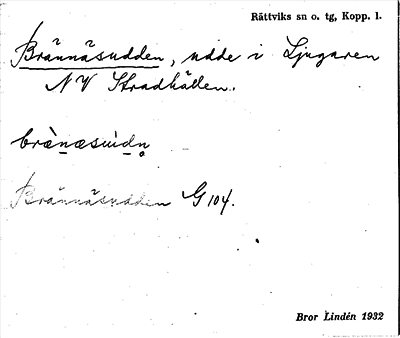 Rättviks sn o. tg, Kopp. l.
Brännäsudden, udde i Ljugaren
NV Stradhällen.
brä̀næsùidn̥
Brännäsudden G 104.
Bror Lindén 1932